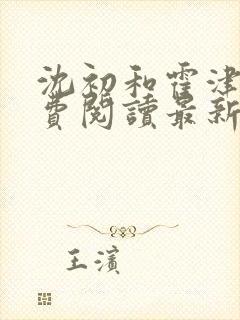 沈初和霍津
費閱讀最新
王濱